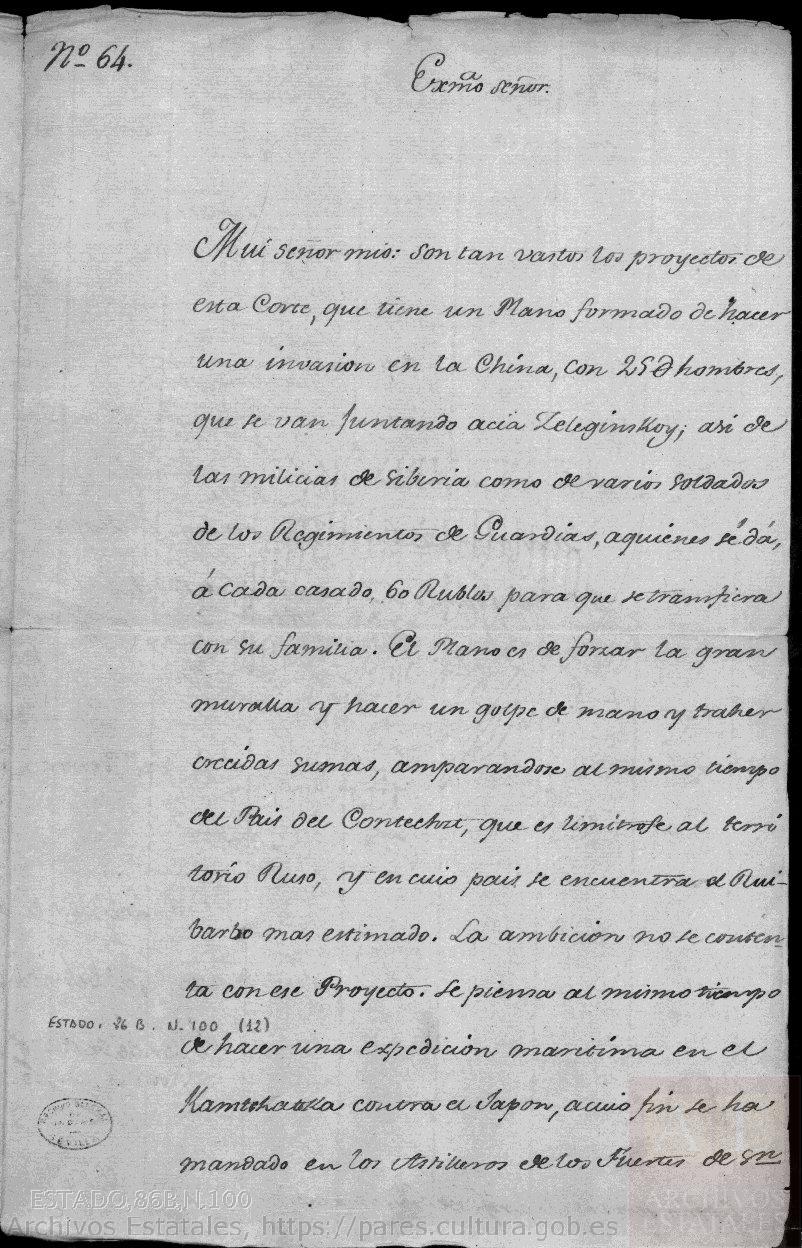 Nº 64.
Exmo señor.
Mui señor mio: son tan vastos los proyectos de
esta Corte, que tiene un Plano formado de hacer
una invasion en la China, con 25∂ hombres,
que se van juntando acia Zeleginskoy; asi de
las milicias de siberia como de varios soldados
de los Regimientos de Guardias, aquienes se dá,
á cada casado, 60 Rublos para que se transfiera
con su familia. El Plano es de forzar la gran
muralla y hacer un golpe de mano y traher
crecidas sumas, amparandose al mismo tiempo
del Pais del Contechut, que es limitrofe al terri
torio Ruso, y en cuio pais se encuentra el Rui-
barbo mas estimado. La ambicion no se conten-
ta con ese Proyecto. Se piensa al mismo tiempo
ESTADO. 86 B. N. 100 (12)
de hacer una expedicion maritima en el
Kamtchatka contra el Japon, a cuio fin se ha
mandado en los Astilleros de los Fuertes de Sn
ARCHIVO GENERAL
SEVILLA
ESTADO,86B,N.100
Archivos Estatales, https://pares.cultura.gob.es
ARCHIVOS
ESTATALES